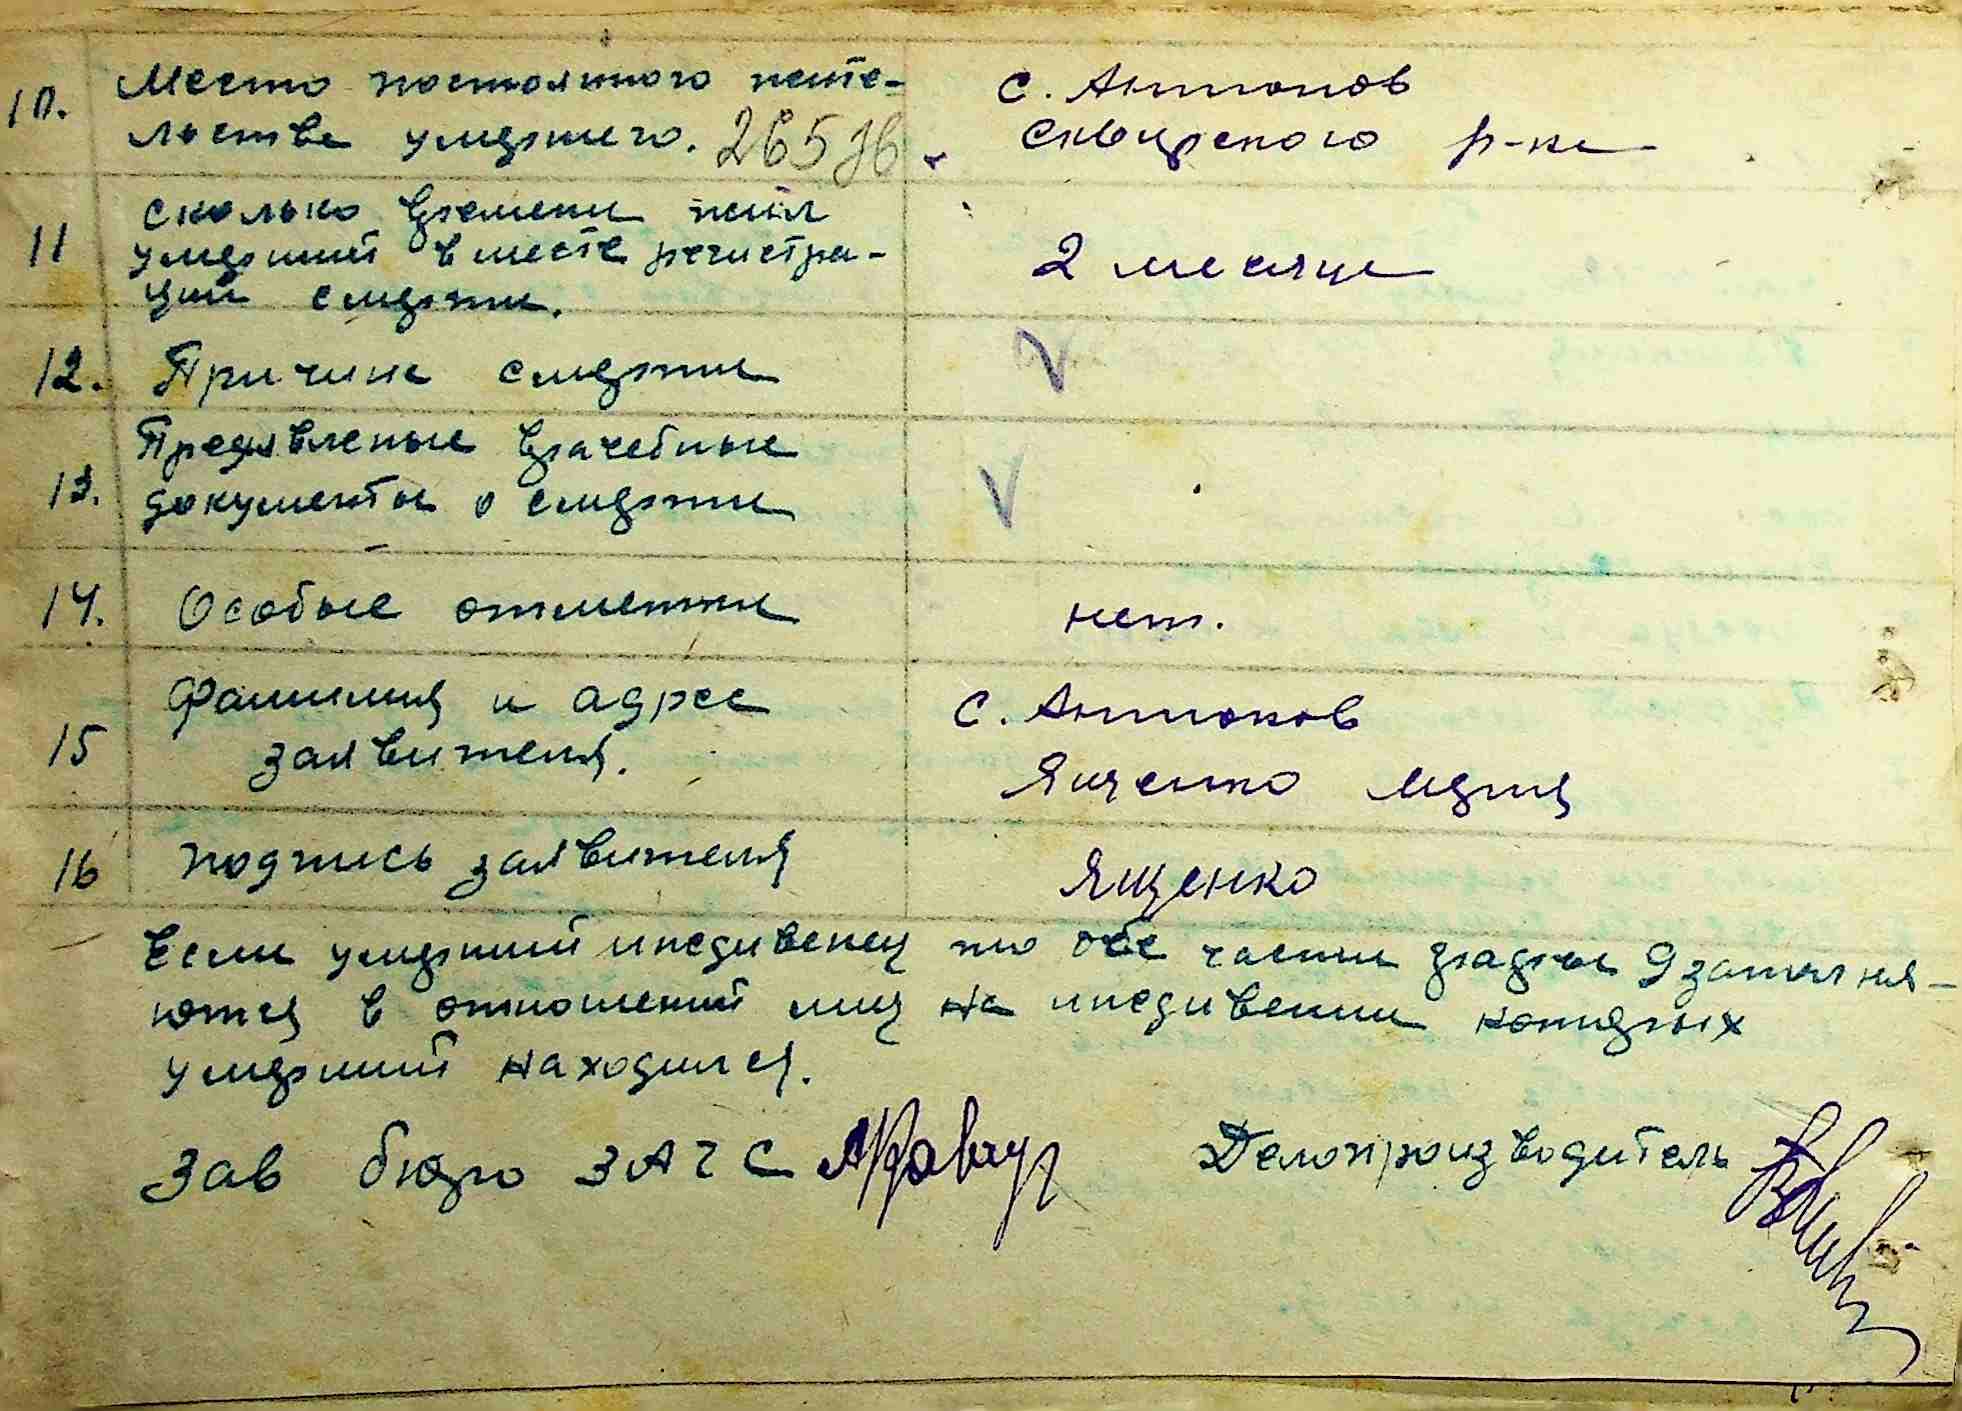 10. Место постоянного жите-
льства умершего. 26536
с. Антонов
Сквирского р-на
11 Сколько времени жил
умерший в месте регистра-
ции смерти.
2 месяца
12. Причина смерти V
13. Предявленые врачебные
документы о смерти V
14. Особые отметки нет.
15 Фамилия и адрес
заявителя.
с. Антонов
Ященко Мария
16 Подпись заявителя Ященко
Если умерший иждивенец то обе части графы 9 заполня-
ются в отношений лиц на иждивении которых
умерший находился.
Зав бюро ЗАГС Делопроизводитель